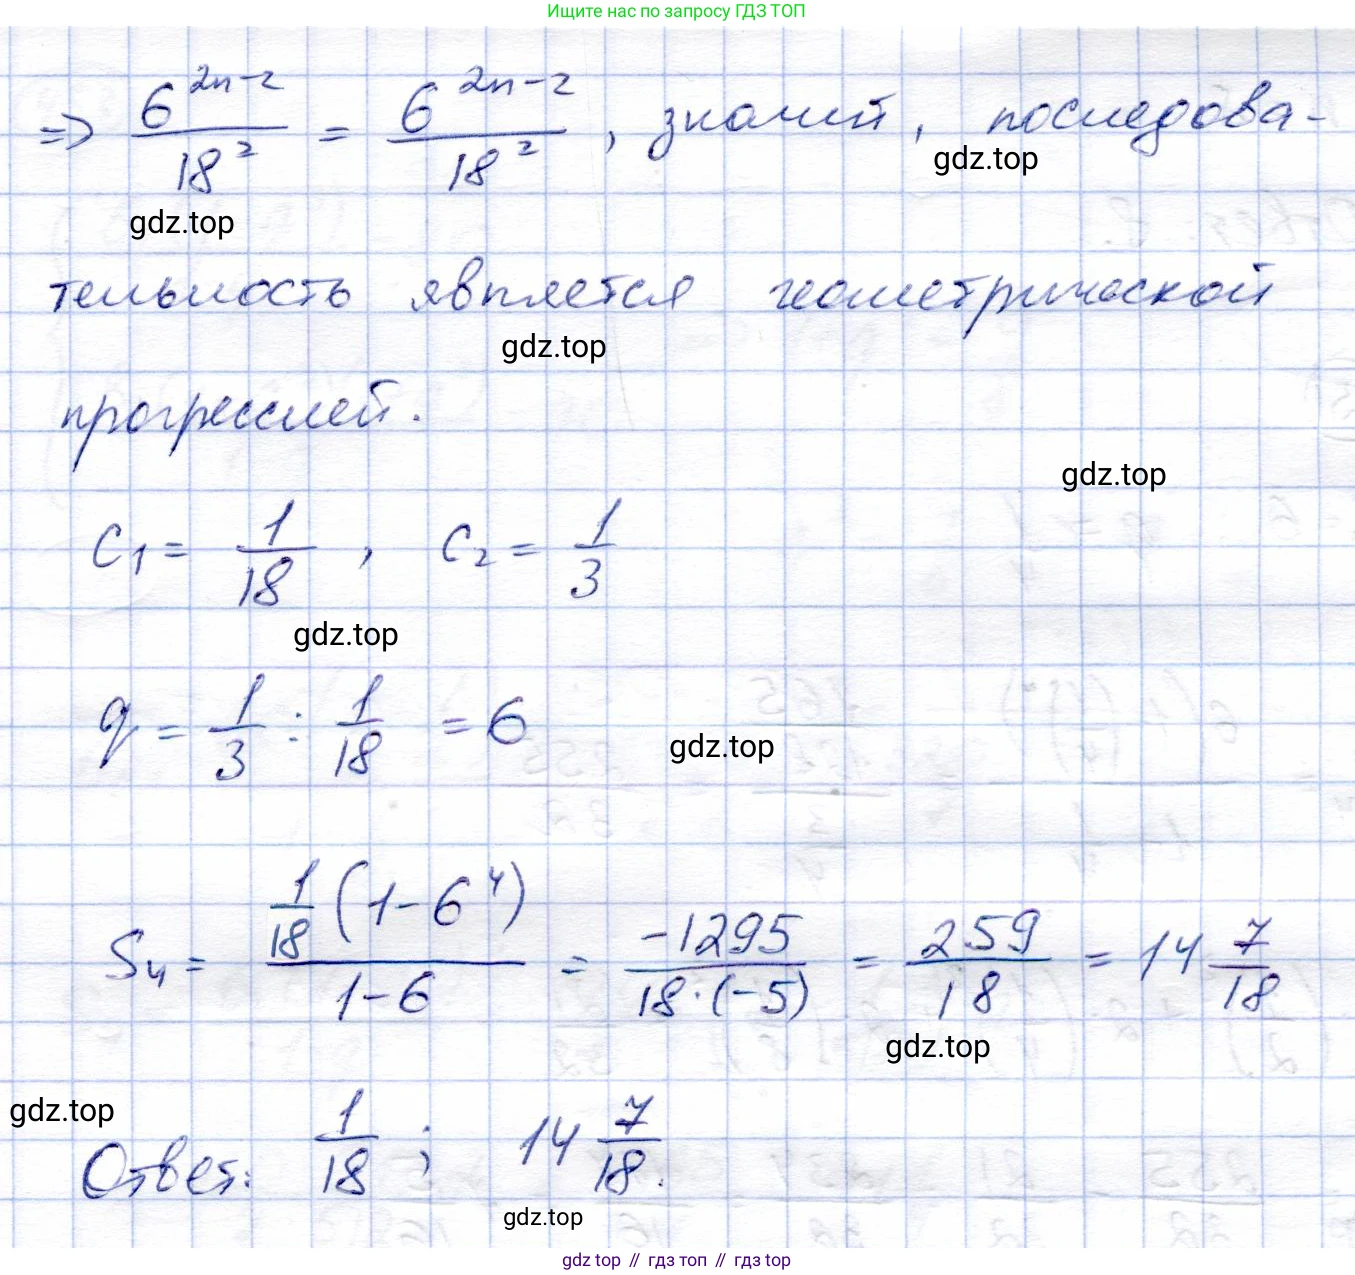 Ищите нас по запросу ГДЗ ТОП
=> 6^(2n-2)/18^2 = 6^(2n-2)/18^2, значит, последова-
gdz.top
gdz.top
тельность является геометрической
gdz.top
прогрессией.
gdz.top
c₁ = 1/18, c₂ = 1/3
gdz.top
q = 1/3 : 1/18 = 6
gdz.top
S₄ = 1/18(1-6^4)/(1-6) = -1295/(18·(-5)) = 259/18 = 14 7/18
gdz.top
gdz.top
Ответ: 1/18; 14 7/18.
gdz.top
gdz top // гдз топ // гдз top